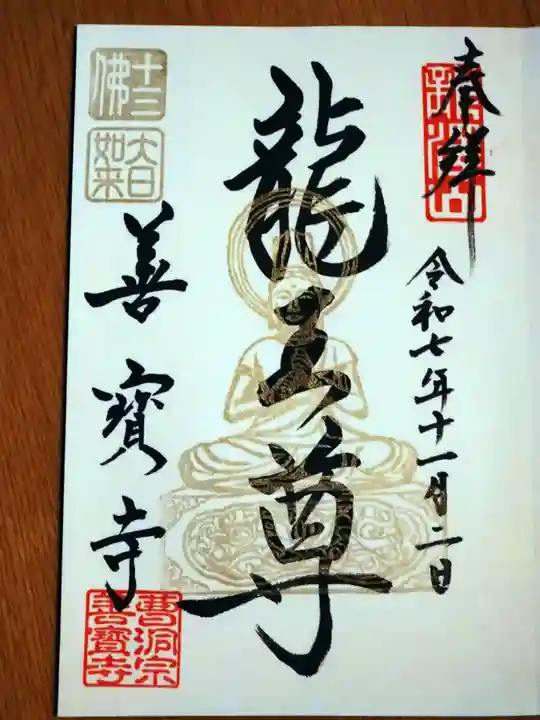 奉拝
令和七年十一月二日
龍王尊
十三佛
大日如来
善寳寺
曹洞宗善寳寺